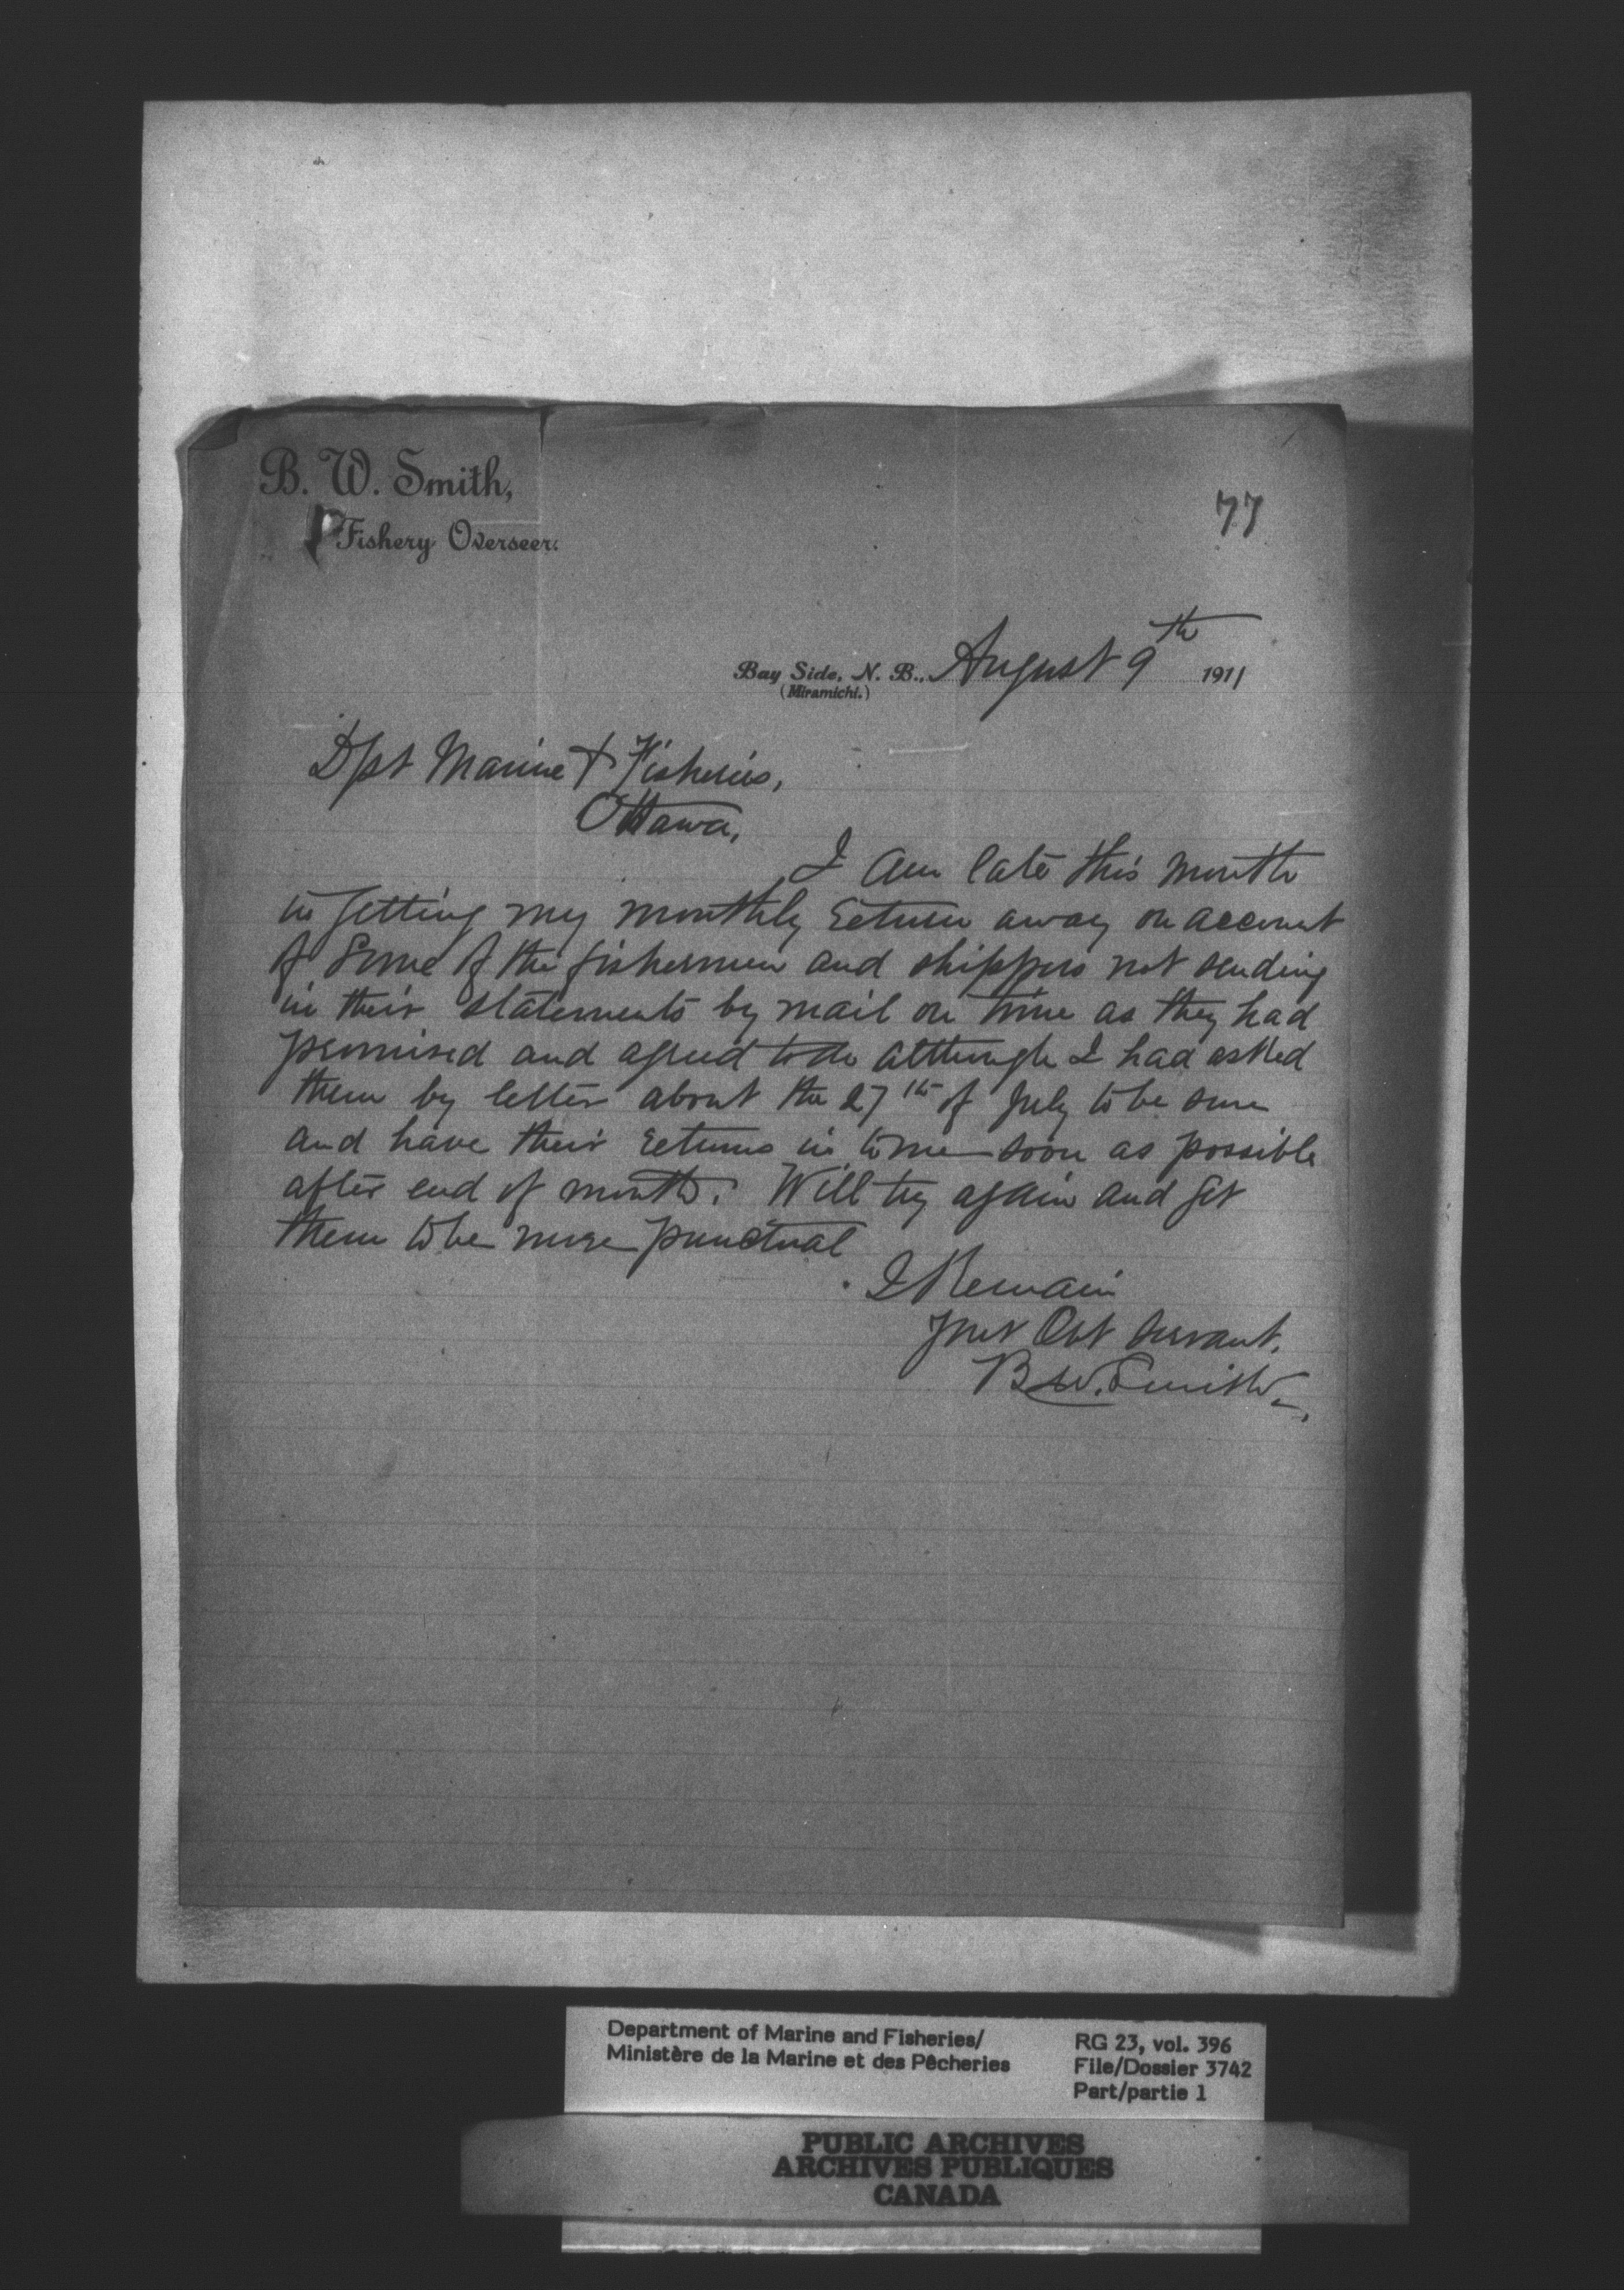 B. W. Smith,
Fishery Overseer.
77
Bay Side, N. B., August 9th 1911
(Miramichi.)
Dpt Marine & Fisheries,
Ottawa,
I am late this month
in getting my monthly return away on account
of some of the fishermen and shippers not sending
in their statements by mail on time as they had
promised and agreed to do although I had asked
them by letter about the 27th of July to be sure
and have their returns in to me soon as possible
after end of month. Will try again and get
them to be more punctual
I Remain
Your Obt Servant.
B. W. Smith
Department of Marine and Fisheries/
Ministère de la Marine et des Pêcheries
RG 23, vol. 396
File/Dossier 3742
Part/partie 1
PUBLIC ARCHIVES
ARCHIVES PUBLIQUES
CANADA